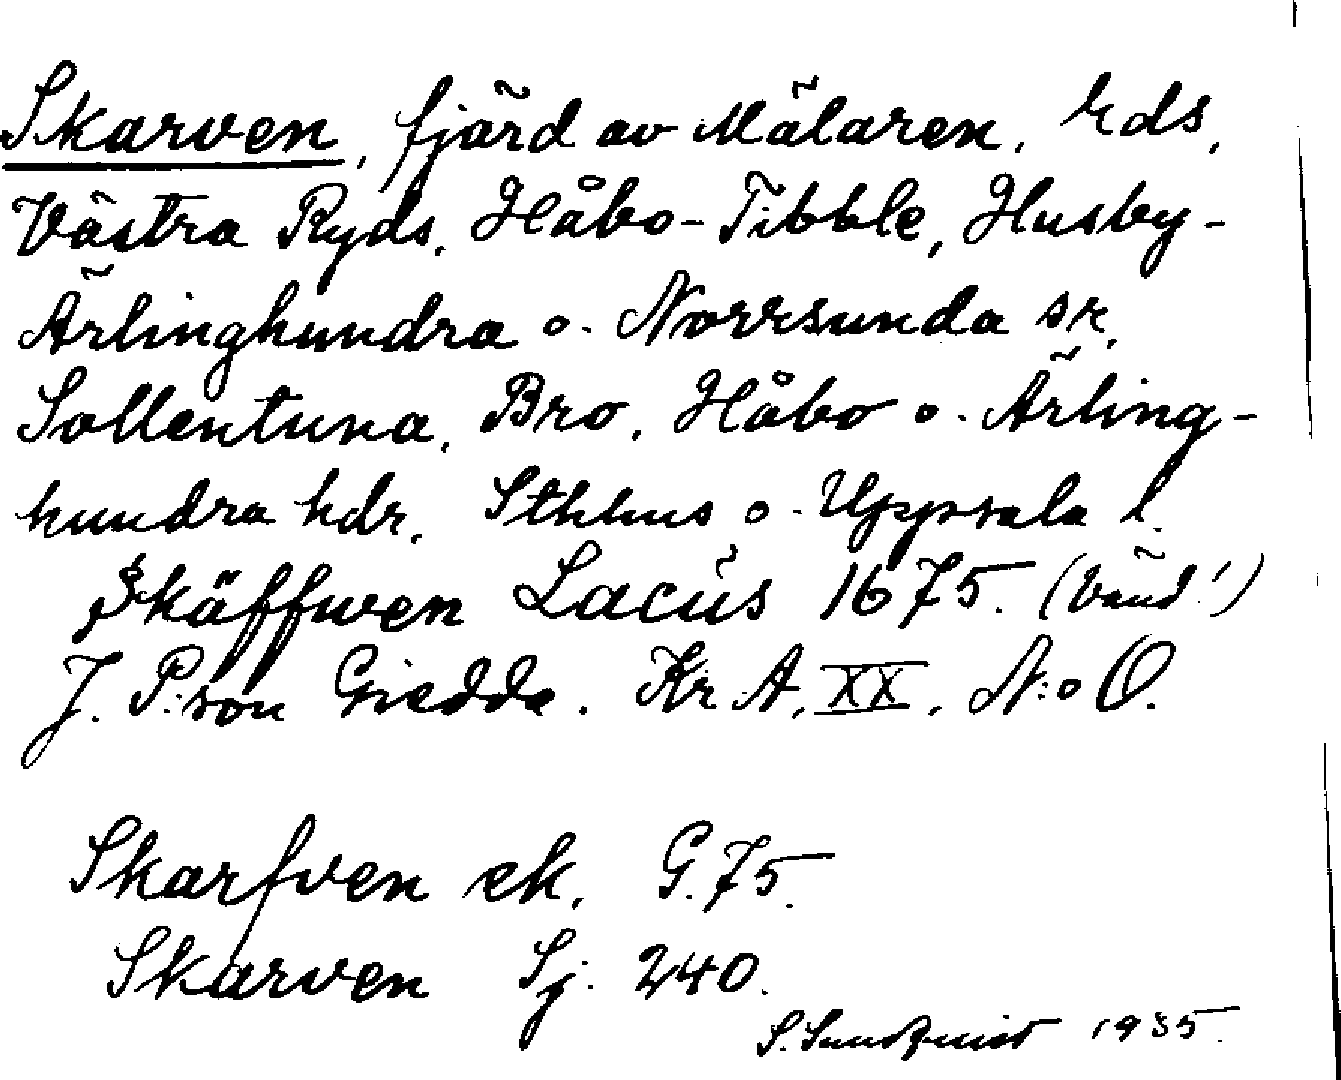 Skarven, fjärd av Mälaren, Eds,
Västra Ryds, Håbo-Tibble, Husby-
Ärlinghundra o. Norrsunda sr,
Sollentuna, Bro, Håbo o. Ärling-
hundra hdr, Sthlms o. Uppsala l.
Skäffwen Lacus 1675. (Vänd!)
J. P:son Giedda. Kr. A, XX, N:o O.
Skarfven ek. G. 75.
Skarven Sj. 240.
S. Sundqvist 1935.